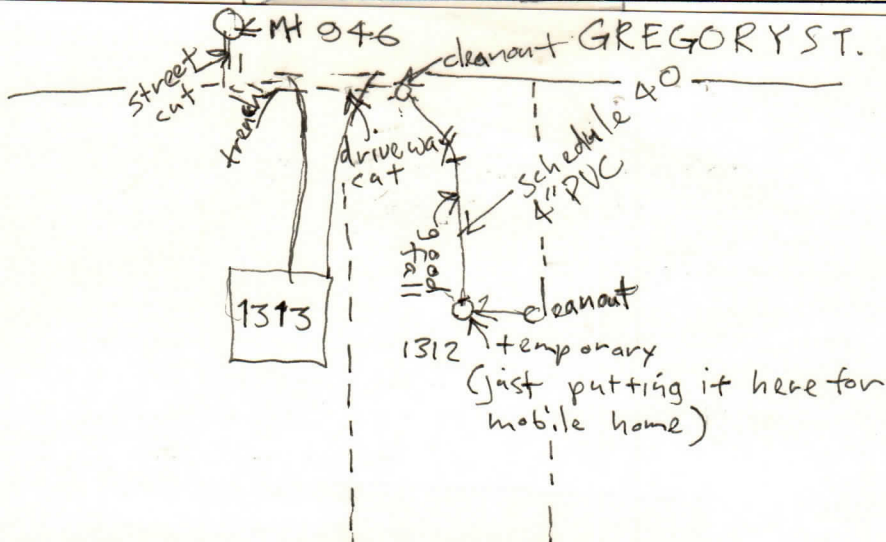 MH 946
cleanout
GREGORY ST.
street
cut
trench
driveway
cut
schedule 40
4" PVC
good
fall
1313
cleanout
1312
temporary
(just putting it here for
mobile home)